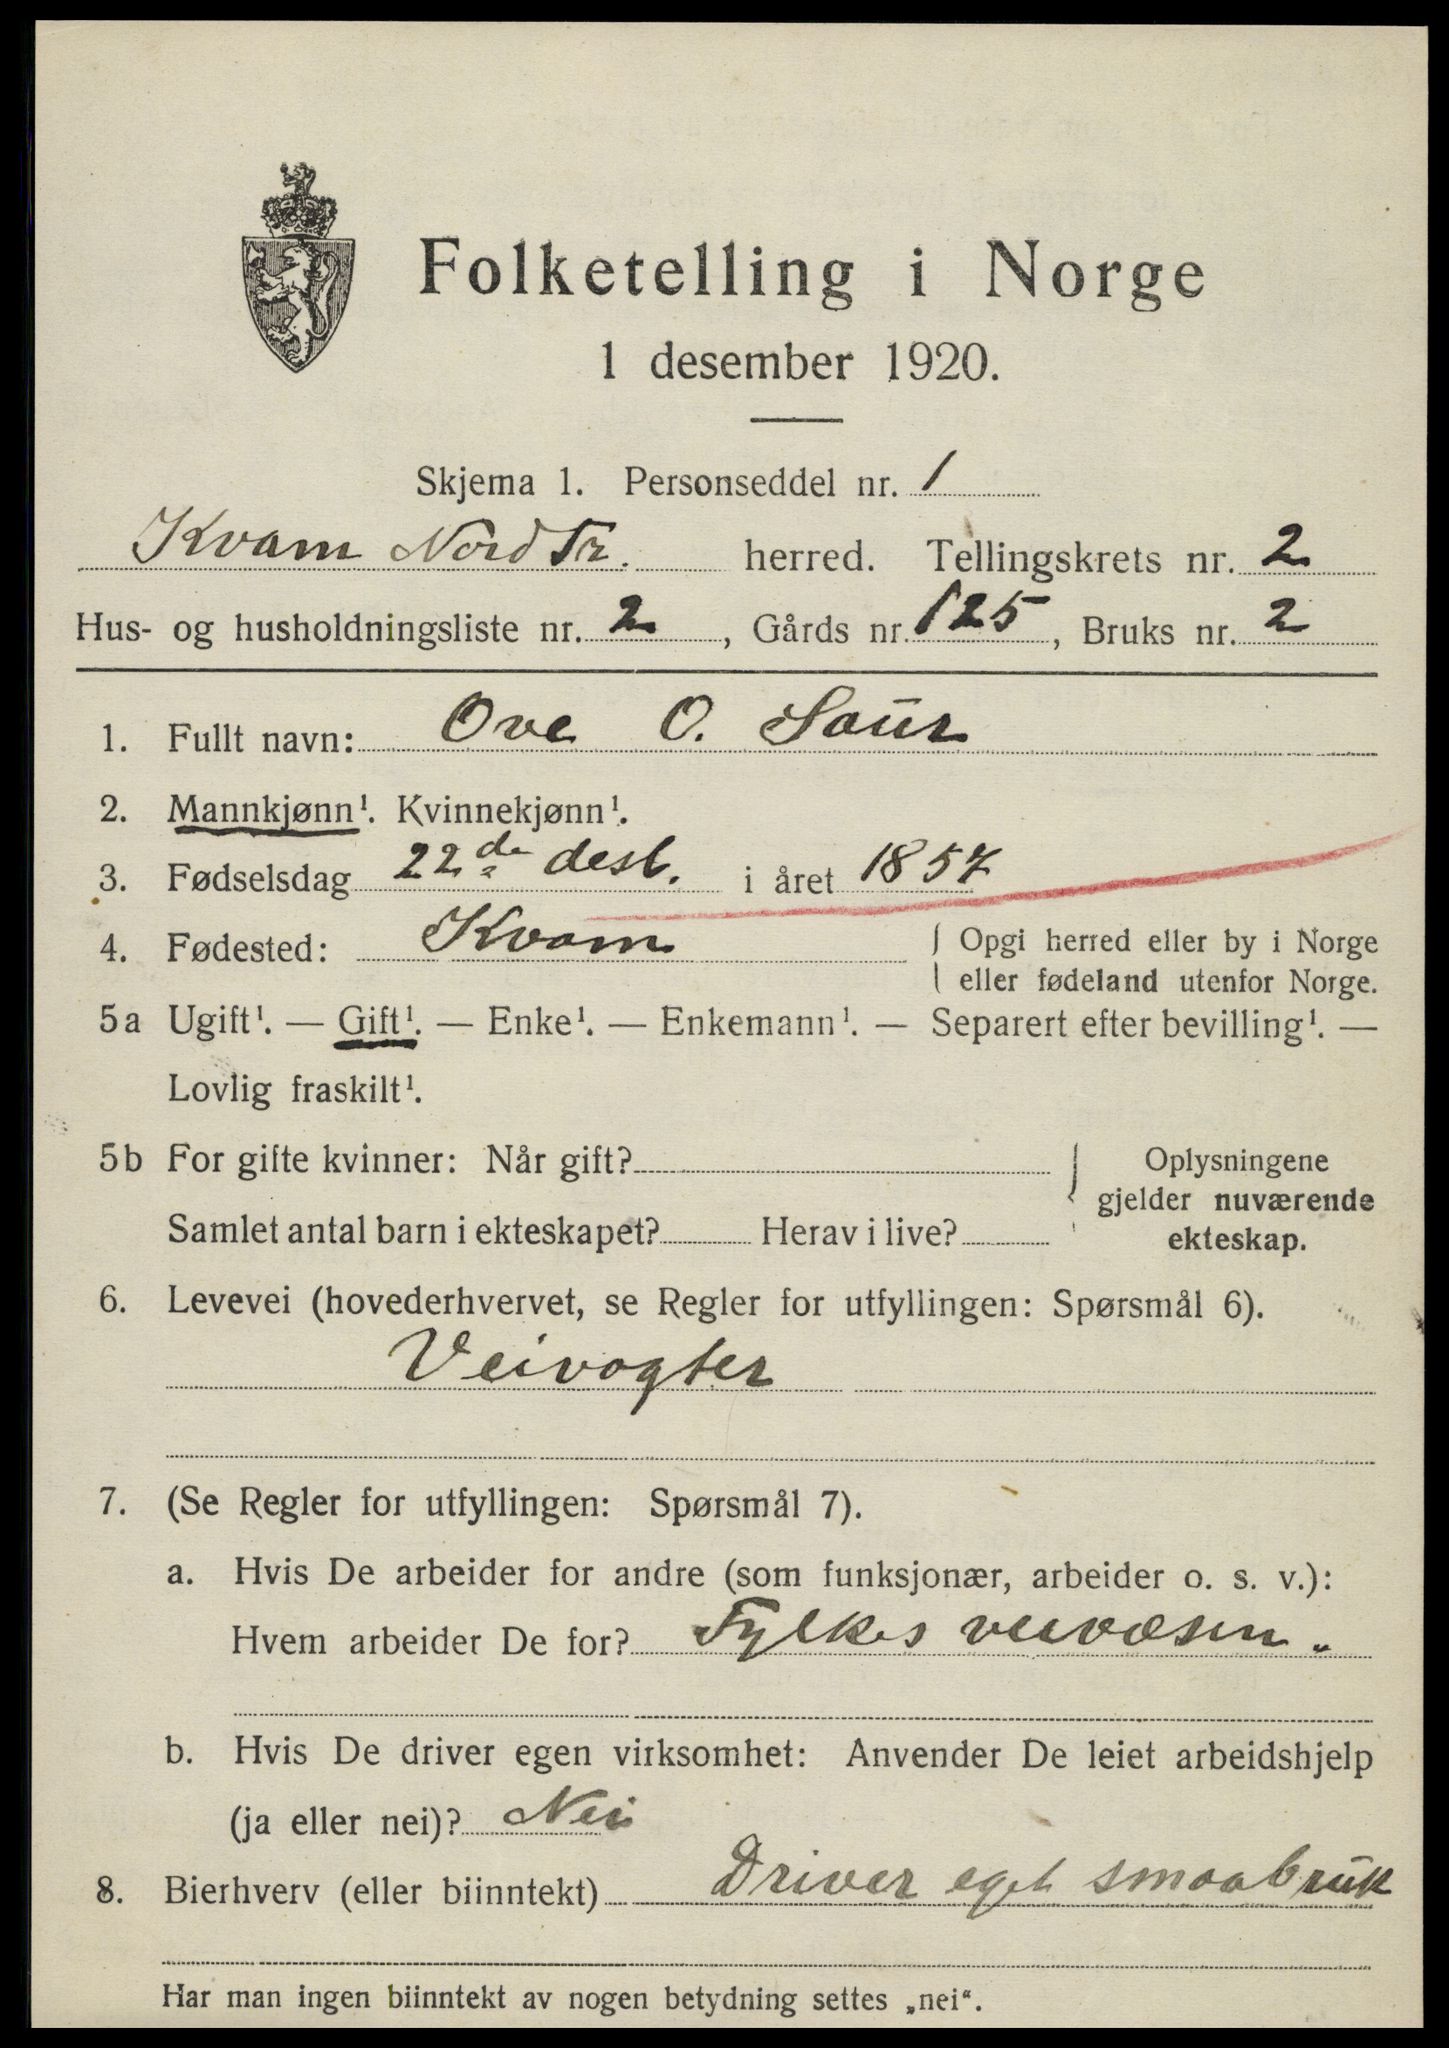 Folketelling i Norge
1 desember 1920.
Skjema 1. Personseddel nr. 1
Kvam Nord Tr. herred. Tellingskrets nr. 2
Hus- og husholdningsliste nr. 2, Gårds nr. 125, Bruks nr. 2
1. Fullt navn: Ove O. Saur
2. Mannkjønn¹. Kvinnekjønn¹.
3. Fødselsdag 22de desb. i året 1857
4. Fødested: Kvam { Opgi herred eller by i Norge
eller fødeland utenfor Norge.
5a Ugift¹. — Gift¹. — Enke¹. — Enkemann¹. — Separert efter bevilling¹. —
Lovlig fraskilt¹.
5b For gifte kvinner: Når gift? { Oplysningene
gjelder nuværende
Samlet antal barn i ekteskapet? Herav i live? ekteskap.
6. Levevei (hovederhvervet, se Regler for utfyllingen: Spørsmål 6).
Veivogter
7. (Se Regler for utfyllingen: Spørsmål 7).
a. Hvis De arbeider for andre (som funksjonær, arbeider o. s. v.):
Hvem arbeider De for? Fylkes veivæsen.
b. Hvis De driver egen virksomhet: Anvender De leiet arbeidshjelp
(ja eller nei)? Nei
8. Bierhverv (eller biinntekt) Driver eget smaabruk
Har man ingen biinntekt av nogen betydning settes „nei“.